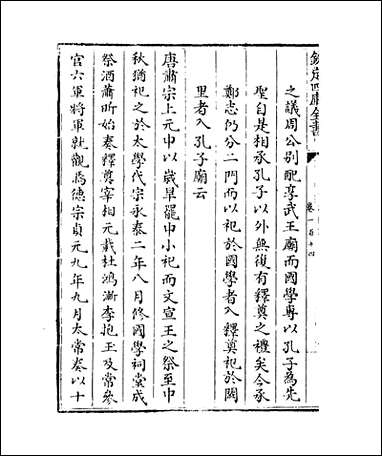 欽定四庫全書
卷一百十四
之議周公别配享武王廟而國學專以孔子為先
聖自是相承孔子以外無復有釋奠之禮矣今承
鄭志仍分二門而以祀於國學者入釋奠祀於闕
里者入孔子廟云
唐肅宗上元中以歲旱罷中小祀而文宣王之祭至中
秋猶祀之於太學代宗永泰二年八月修國學祠堂成
祭酒蕭昕始奏釋奠宰相元載杜鴻漸李抱玉及常參
官六軍將軍就觀焉德宗貞元九年九月太常奏以十